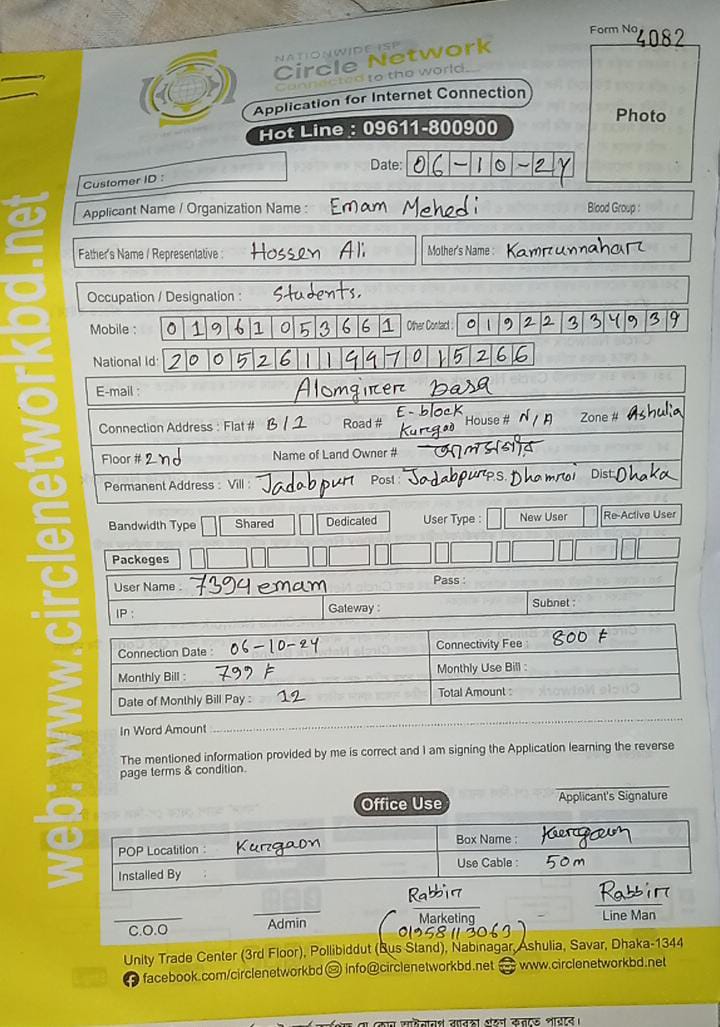 Form No. 4082
NATIONWIDE ISP
Circle Network
Connected to the world....
Application for Internet Connection
Hot Line : 09611-800900
Photo
Date: 06-10-24
Customer ID :
Applicant Name / Organization Name : Emam Mehedi Blood Group :
Father's Name / Representative : Hossen Ali Mother's Name : Kamrunnahar
Occupation / Designation : Students.
Mobile : 01961053661 Other Contact : 01922334939
National Id: 20052611997015266
E-mail : Alomgirer basa
Connection Address : Flat # B/2 Road # E-block Kurgao House # N/A Zone # Ashulia
Floor # 2nd Name of Land Owner # আলমগীর
Permanent Address : Vill : Jadabpur Post : Jadabpur P.S. Dhamroi Dist: Dhaka
Bandwidth Type Shared Dedicated User Type : New User Re-Active User
Packeges
User Name : 7394emam Pass :
IP : Gateway : Subnet :
Connection Date : 06-10-24 Connectivity Fee : 800 ৳
Monthly Bill : 799 ৳ Monthly Use Bill :
Date of Monthly Bill Pay : 12 Total Amount :
In Word Amount
The mentioned information provided by me is correct and I am signing the Application learning the reverse
page terms & condition.
Applicant's Signature
Office Use
POP Locatition : Kurgaon Box Name : Kurgaon
Installed By : Use Cable : 50m
Rabbir Rabbir
C.O.O Admin Marketing Line Man
(01958113063)
Unity Trade Center (3rd Floor), Pollibiddut (Bus Stand), Nabinagar, Ashulia, Savar, Dhaka-1344
facebook.com/circlenetworkbd info@circlenetworkbd.net www.circlenetworkbd.net
web: www.circlenetworkbd.net